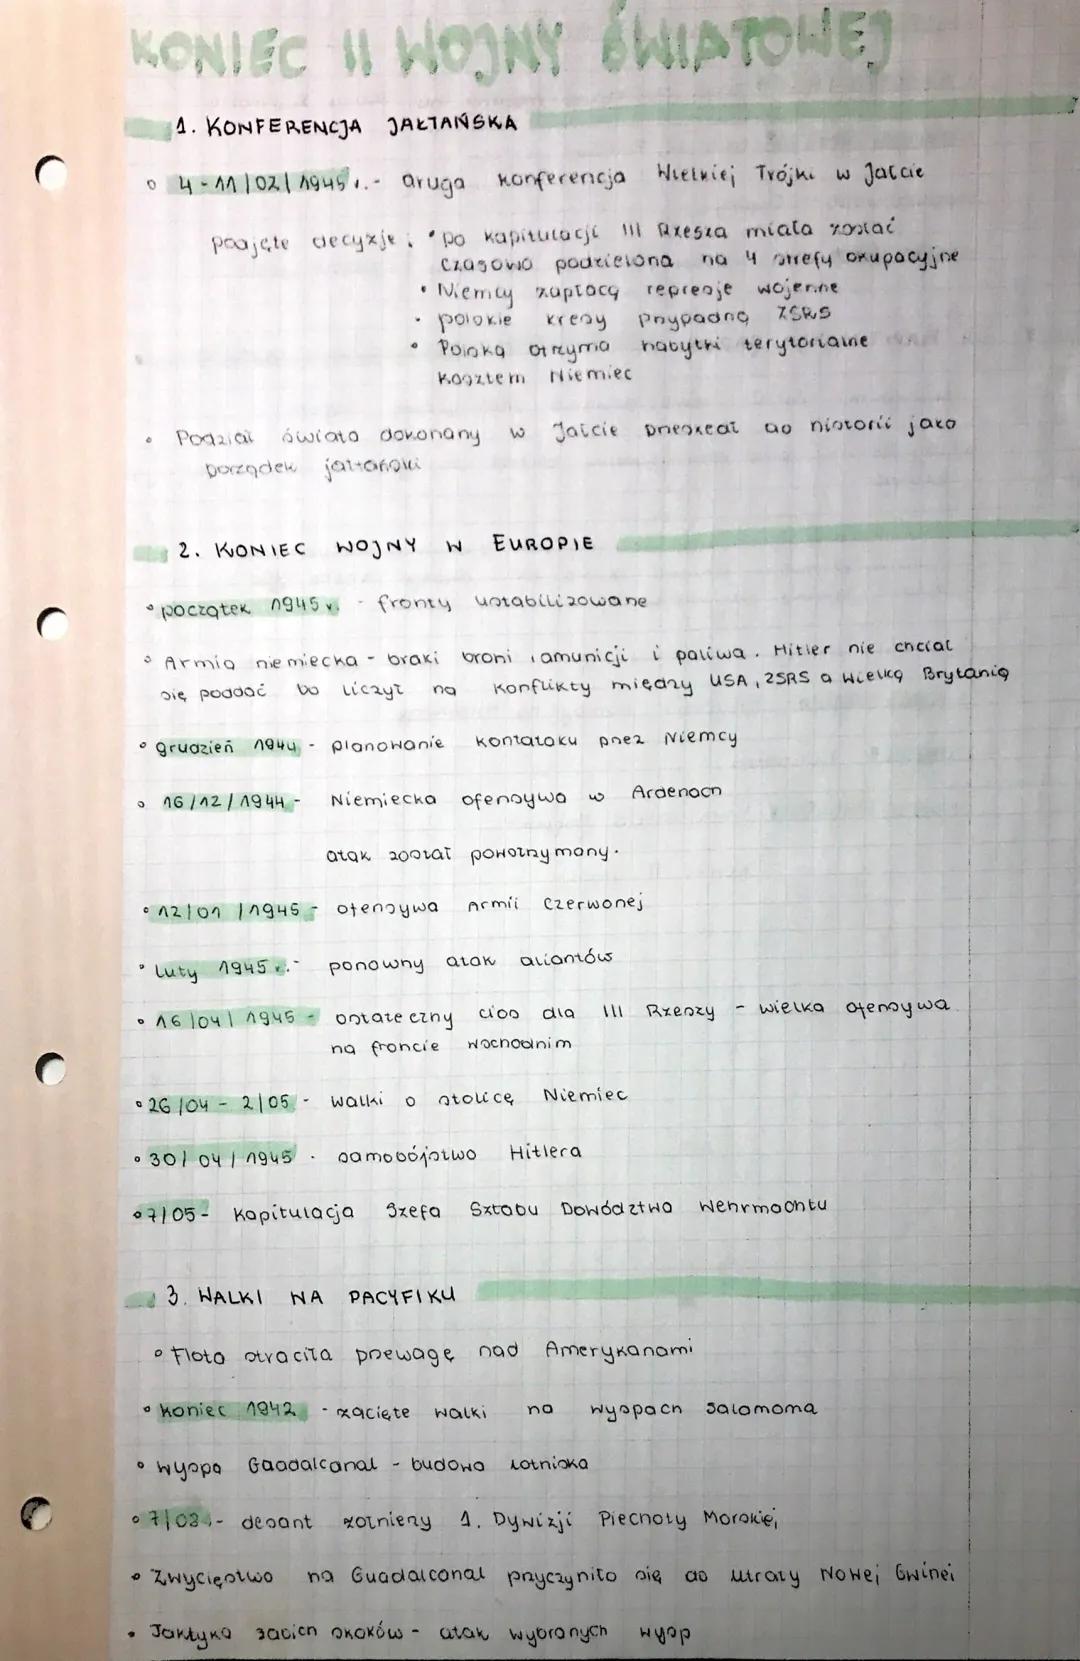 KONIEC II WOJNY ŚWIATOWEJ
1. KONFERENCJA JAŁTAŃSKA
4-11/02/1945 r. - druga konferencja Wielkiej Trójki w Jałcie
podjęte decyzje: • po kapitulacji III Rzesza miała zostać
czasowo podzielona na 4 strefy okupacyjne
• Niemcy zapłacą represje wojenne
• polskie kresy przypadną ZSRS
• Polska otrzyma nabytki terytorialne
kosztem Niemiec
• Podział świata dokonany w Jałcie przeszedł do historii jako
porządek jałtański
2. KONIEC WOJNY W EUROPIE
• początek 1945 r. - fronty ustabilizowane
• Armia niemiecka - braki broni, amunicji i paliwa. Hitler nie chciał
się poddać bo liczył na konflikty między USA, ZSRS a Wielką Brytanią
• grudzień 1944 - planowanie kontrataku przez Niemcy
• 16/12/1944 - Niemiecka ofensywa w Ardenach
atak został powstrzymany.
• 12/01/1945 - ofensywa Armii Czerwonej
• luty 1945 r. - ponowny atak aliantów
• 16/04/1945 - ostateczny cios dla III Rzeszy - wielka ofensywa
na froncie wschodnim
• 26/04 - 2/05 - walki o stolicę Niemiec
• 30/04/1945 - samobójstwo Hitlera
• 7/05 - kapitulacja Szefa Sztabu Dowództwa Wehrmachtu
3. WALKI NA PACYFIKU
• Flota straciła przewagę nad Amerykanami
• koniec 1942 - zacięte walki na wyspach Salomona
• wyspa Gaadalcanal - budowa lotniska
• 7/08 - desant żołnierzy 1. Dywizji Piechoty Morskiej
• Zwycięstwo na Guadalcanal przyczyniło się do utraty Nowej Gwinei
• Taktyka żabich skoków - atak wybranych wysp